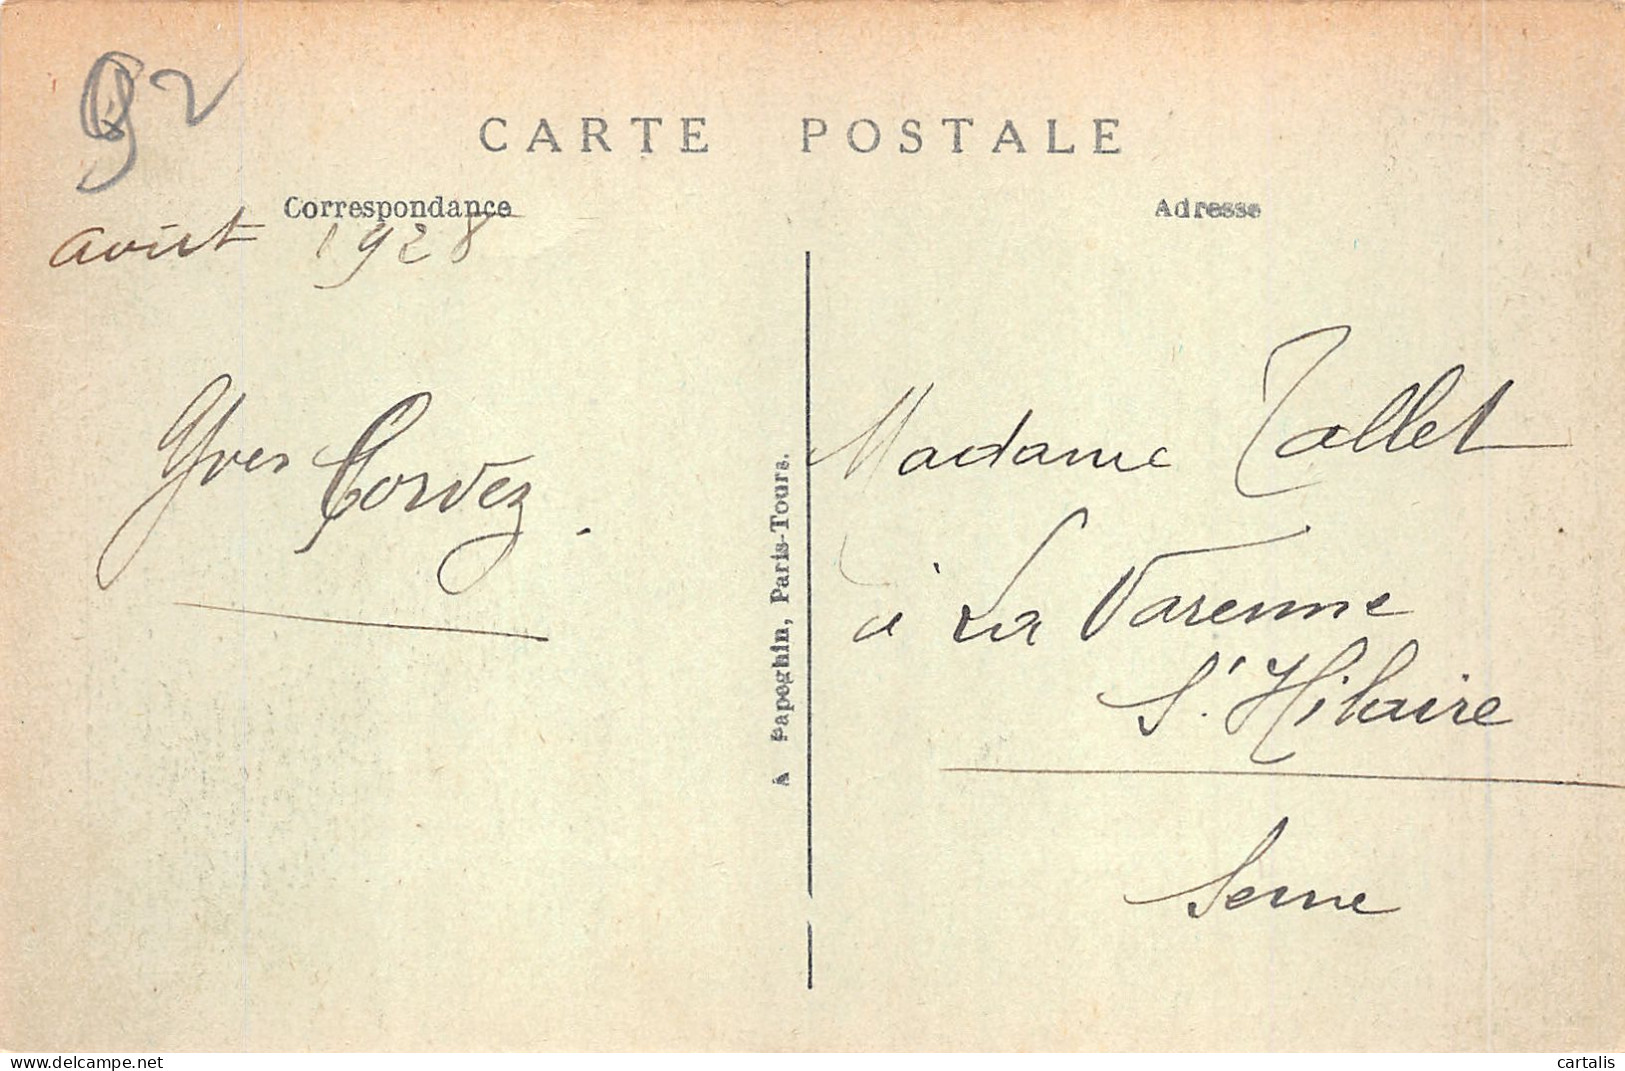 92
CARTE POSTALE
Correspondance
Adresse
août 1928
Yves Corvez.
A Papeghin, Paris-Tours.
Madame Tallet
à La Varenne
St. Hilaire
Seine
cartalis
delcampe.net